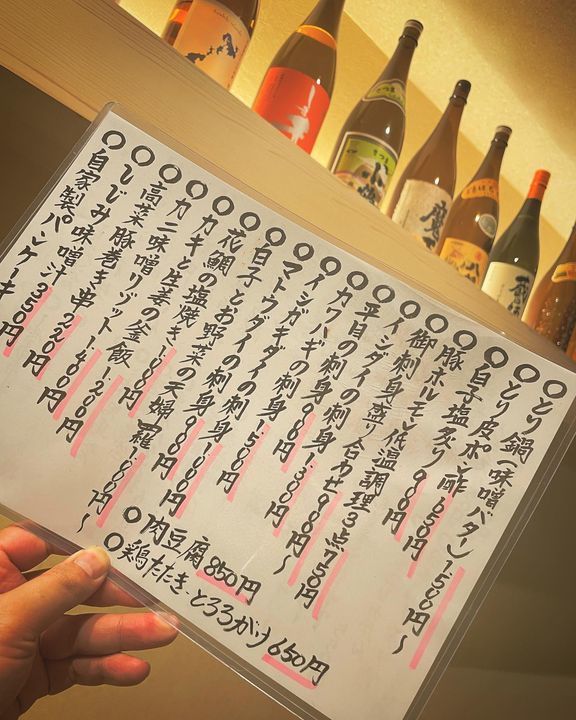 〇とり鍋(味噌バター)1,500円〜
〇とり皮ポン酢 650円
〇白子塩炙り 900円
〇豚ホルモン低温調理3点 750円
〇御刺身盛り合わせ 900円〜
〇イシダイの刺身 1,300円
〇平目の刺身 900円
〇カワハギの刺身 1,500円
〇イシガキダイの刺身
〇マトウダイの刺身 900円
〇白子とお野菜の天婦羅 1,000円〜
〇花鯛の塩焼き
〇カキと生姜の釜飯 1,200円
〇カニ味噌リゾット 1,400円
〇高菜豚巻き串 220円
〇しじみ味噌汁 350円
〇自家製パンケーキ
〇肉豆腐 850円
〇鶏たたき、とろろがけ 650円